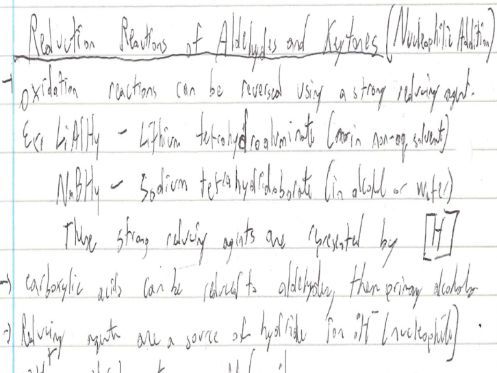 Reduction Reactions of Aldehydes and Keytones (Nucleophilic Addition)
→ Oxidation reactions can be reversed using a strong reducing agent.
Ex: LiAlH4 – Lithium tetrahydroaluminate ( in non-aq. solvent)
NaBH4 – Sodium tetrahydridoborate (in alcohol or water)
These strong reducing agents are represented by [H]
→ carboxylic acids can be reduced to aldehydes, then primary alcohols
→ Reducing agents are a source of hydride ion :H⁻ (nucleophile)